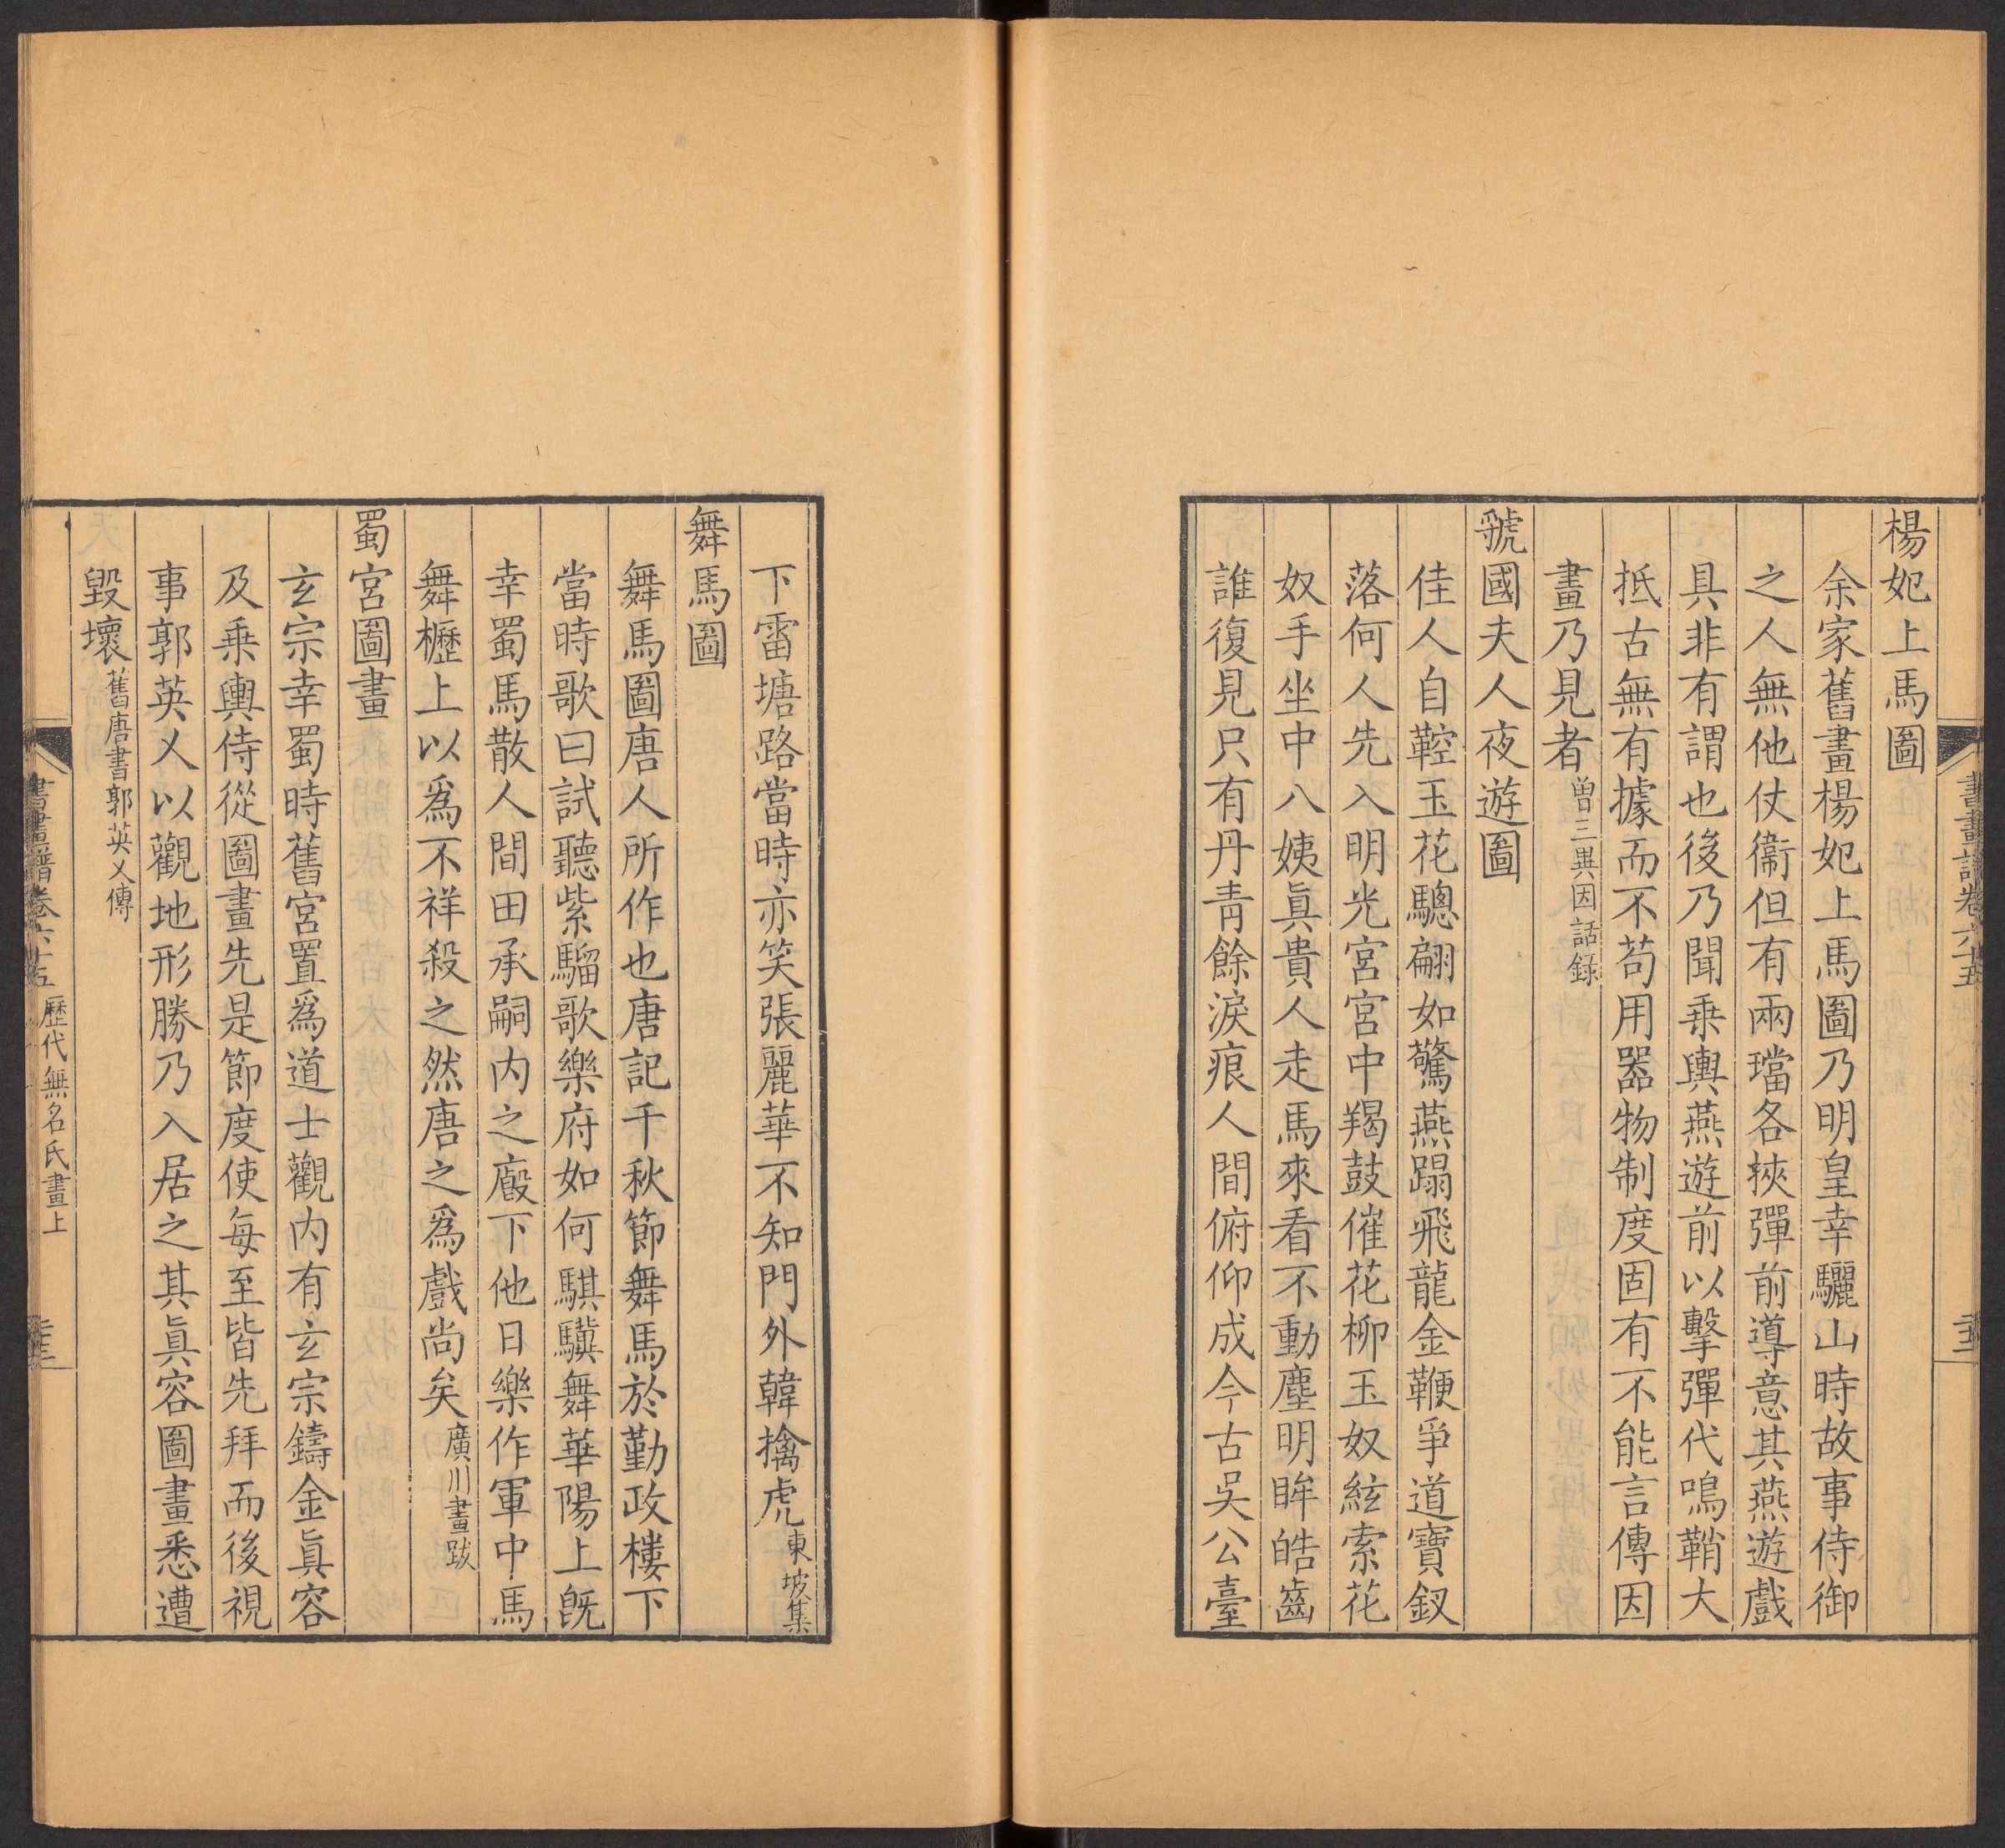 書畫譜卷六十五
楊妃上馬圖
余家舊畫楊妃上馬圖乃明皇幸驪山時故事侍御
之人無他仗衞但有兩璫各挾彈前導意其燕遊戲
具非有謂也後乃聞乗輿燕遊前以擊彈代鳴鞘大
抵古無有據而不苟用器物制度固有不能言傳因
畫乃見者曽三異因話録
虢國夫人夜遊圖
佳人自鞚玉花驄翩如驚燕蹋飛龍金鞭爭道寶釵
落何人先入明光宮宮中羯鼓催花柳玉奴絃索花
奴手坐中八姨眞貴人走馬來看不動塵明眸皓齒
誰復見只有丹青餘淚痕人間俯仰成今古吳公臺
下雷塘路當時亦笑張麗華不知門外韓擒虎東坡集
舞馬圖
舞馬圖唐人所作也唐記千秋節舞馬於勤政樓下
當時歌曰試聽紫騮歌樂府如何騏驥舞華陽上旣
幸蜀馬散人間田承嗣内之廏下他日樂作軍中馬
舞櫪上以爲不祥殺之然唐之爲戲尚矣廣川畫跋
蜀宮圖畫
玄宗幸蜀時舊宮置爲道士觀内有玄宗鑄金眞容
及乗輿侍從圖畫先是節度使每至皆先拜而後視
事郭英乂以觀地形勝乃入居之其眞容圖畫悉遭
毀壞舊唐書郭英乂傳
書畫譜卷六十五 歷代無名氏畫上